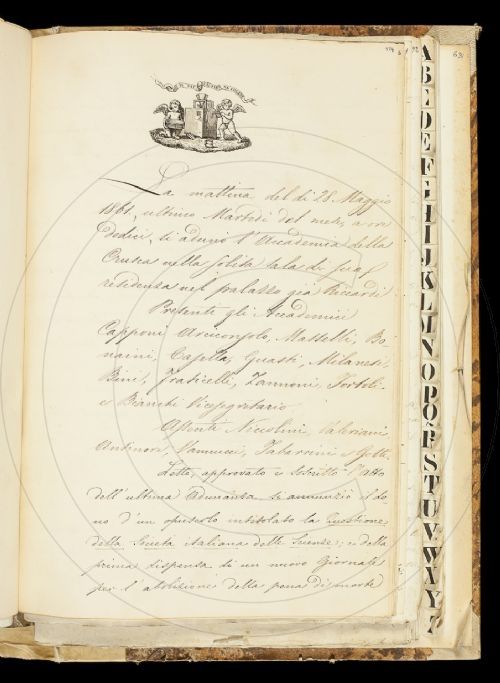 La mattina del dì 28. Maggio
1861, ultimo Martedì del mese, a ore
dodici, si adunò l'Accademia della
Crusca nella solita sala di sua
residenza nel palazzo già Riccardi
Presenti gli Accademici
Capponi Arciconsolo, Masselli, Bo-
naini, Capella, Guasti, Milanesi,
Bini, Fraticelli, Zannoni, Tortoli
e Bianchi Vicesegretario.
Assenti Niccolini, Valeriani,
Antinori, Vannucci, Tabarrini e Gotti.
Letto, approvato e soscritto l'Atto
dell'ultima Adunanza si annunziò il do-
no d'un opuscolo intitolato la Questione
della Società italiana delle Scienze; e della
prima dispensa di un nuovo Giornale
per l'abolizione della pena di morte
A
B
C
D
E
F
G
H
I
J
K
L
M
N
O
P
Q
R
S
T
U
V
W
X
Y
Z